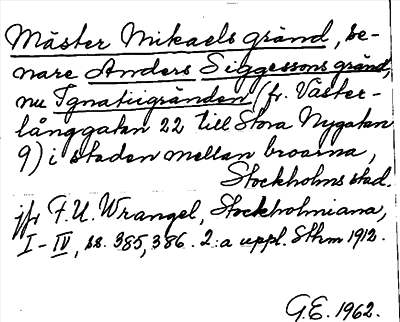 Mäster Mikaels gränd, se-
nare Anders Siggessons gränd,
nu Ignatiigränden (fr. Väster-
långgatan 22 till Stora Nygatan
9) i staden mellan broarna,
Stockholms stad.
jfr F.U. Wrangel, Stockholmiana,
I-IV, ss. 385, 386. 2:a uppl. Sthm 1912.
G.E. 1962.